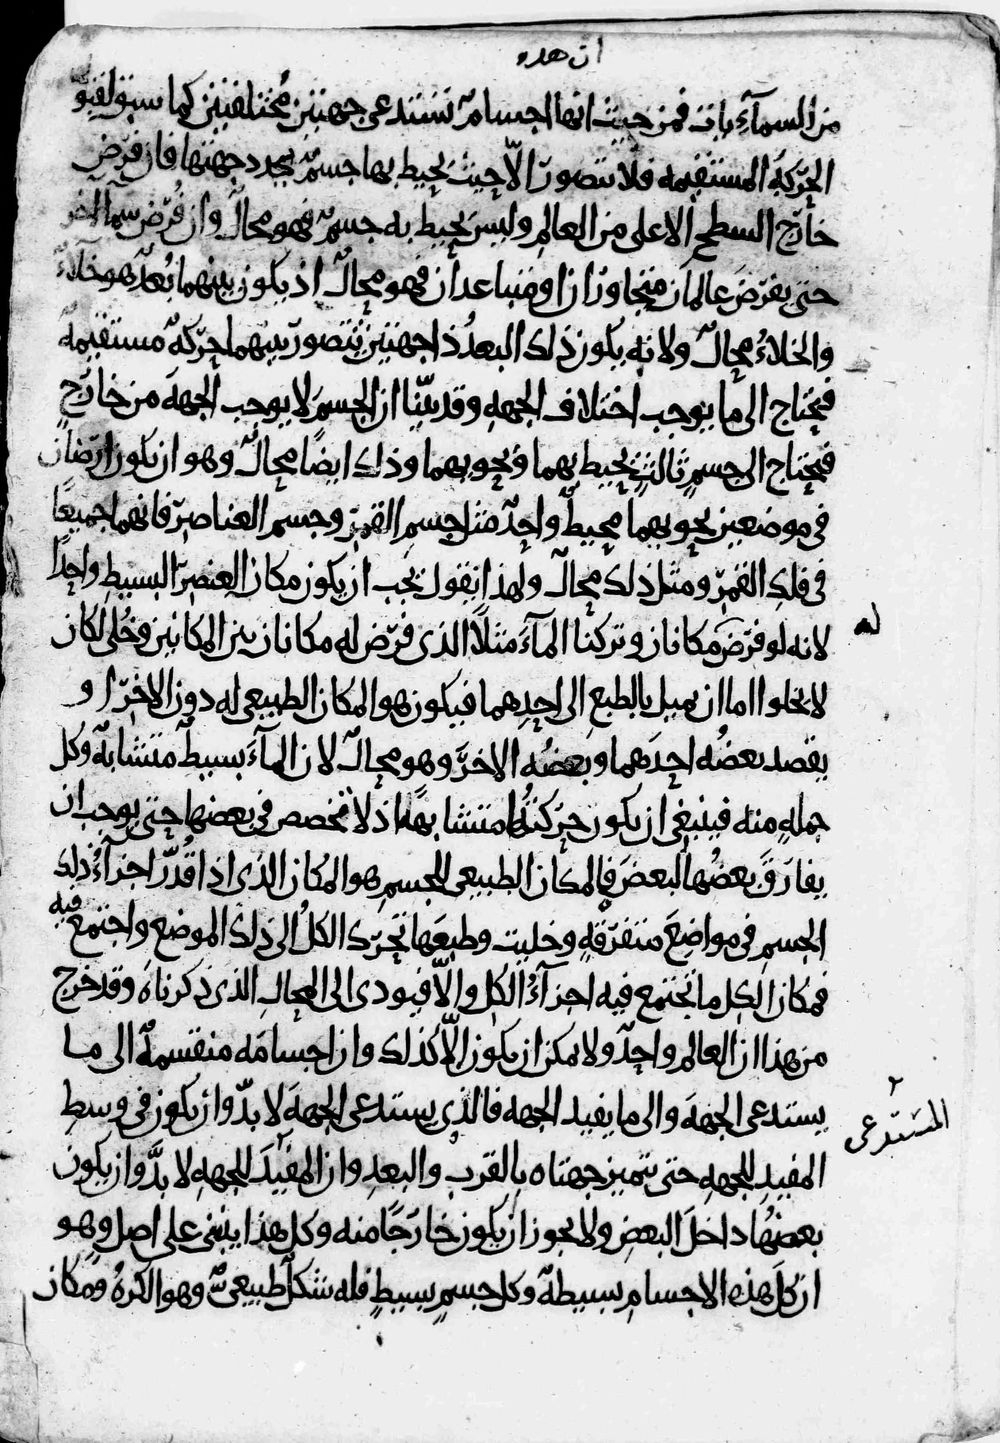 ان هذه
من السمآءِ بان فمن حيث انها اجسامٌ تستدعى جهتين مختلفتين كما سبق لقبول
الحركةِ المستقيمه فلا تتصورّ الّا حيث يحيط بها جسمٌ يحدد جهتها فان فرّض
خارّج السطحِ الاعلى من العالمِ وليس يحيط به جسمٌ فهو محالٌ وان فُرّض سمآ اخر
حتى يفرّضَ عالمان متجاورّان او متباعدان فهو محالٌ اذ يكون بينهما بُعدٌ هو خلآءٌ
والخلاءُ محالٌ ولانه يكون ذلك البعدُ ذا جهتين تتصورّ بينهما حرّكةٌ مستقيمةٌ
فيحتاج الى ما يوجب اختلاف الجهه وقد بيّنا ان الجسمَ لا يوجب الجهةَ من خارّجٍ
فيحتاج الى جسمٍ ثالثٍ يحيط بهما ويحويهما وذلك ايضًا محالٌ وهو ان يكون ارّضان
فى موضعين يحويهما محيطٌ واحدٌ مثل جسمِ القمرّ وجسم العناصرّ فانهما جميعًا
فى فلكِ القمرّ ومثل ذلك محالٌ ولهذا نقول يجب ان يكون مكان العنصرّ البسيطِ واحدًا
لانه لو فرّضَ مكانان وتركنا المآءَ مثلًا الذى فرّض له مكانان بين المكانين وخُلى لكان
له
لا يخلوا اما ان يميل بالطبعِ الى احدِهما فيكون هو المكان الطبيعى له دون الاخرّ او
يقصد بعضُه احدَهما وبعضُه الاخرَّ وهو محالٌ لان المآءَ بسيطٌ متشابهٌ وكل
جملهٍ منه فينبغى ان يكون حركتُها متشابهةً اذ لا مخصص فى بعضها حتى يوجب ان
يفارّقَ بعضُها البعضَ فالمكان الطبيعى للجسمِ هو المكان الذى اذا قُدّرّ اجزآءُ ذلك
الجسم فى مواضعَ متفرّقهٍ وخليت وطبعَها تحرّك الكلُ الى ذلك الموضع واجتمع فيه
فمكان الكل ما تجتمع فيه اجزآءُ الكلِ والّا فيودى الى المحالِ الذى ذكرناهَ وقد خرج
من هذا ان العالم واحدٌ ولا يمكن ان يكون الّا كذلك وان اجسامَه منقسمةٌ الى ما
يستدعى الجهةَ والى ما يفيد الجهه فالذى يستدعى الجهةَ لا بدّ وان يكون فى وسطِ
المستدعى
المفيدِ للجهه حتى يتميز جهتاه بالقربِ والبعدِ وان المفيدَ للجهه لا بدَّ وان يكون
بعضُها داخلَ البعضِ ولا يجوز ان يكون خارَجًا منه وكل هذا يبنى على اصل وهو
ان كلَ هذه الاجسامِ بسيطةٌ وكل جسمٍ بسيطٍ فله شكلٌ طبيعىٌّ وهو الكرهُ ومكان